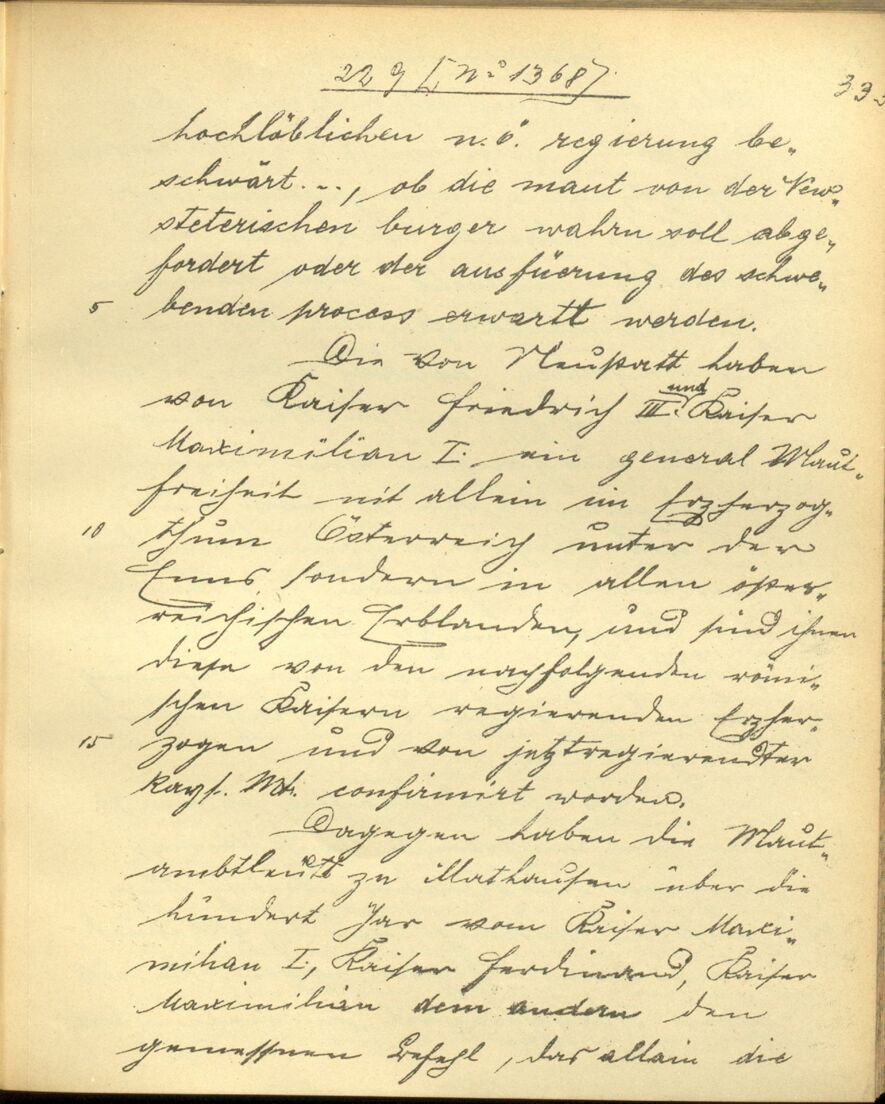 229 [Nº 1368]
hochlöblichen n.ö. regierung be„
schwärt..., ob die maut von der New„
steterischen burger wahrn soll abge„
fordert oder der ausfüerung des schwe„
5 benden process erwartt werden.
Die von Neustatt haben
von Kaiser Friedrich III. und Kaiser
Maximilian I. ein general Maut„
freiheit nit allein im Erzherzog„
10 thum Österreich unter der
Enns, sondern in allen öster„
reichischen Erblanden, und sind ihnen
diese von den nachfolgenden römi„
schen Kaisern regierenden Erzher„
15 zogen und von jetztregierendter
kays. Mt. confirmirt worden.
Dagegen haben die Maut„
ambtleutt zu Mathausen über die
hundert Jar vom Kaiser Maxi„
milian I., Kaiser Ferdinand, Kaiser
Maximilian dem andern den
gemessnen Befehl, das allain die